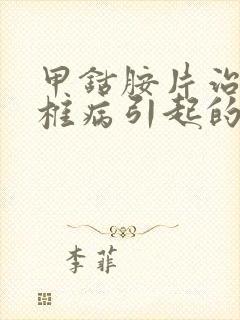 甲钴胺片治
椎病引起的
李菲